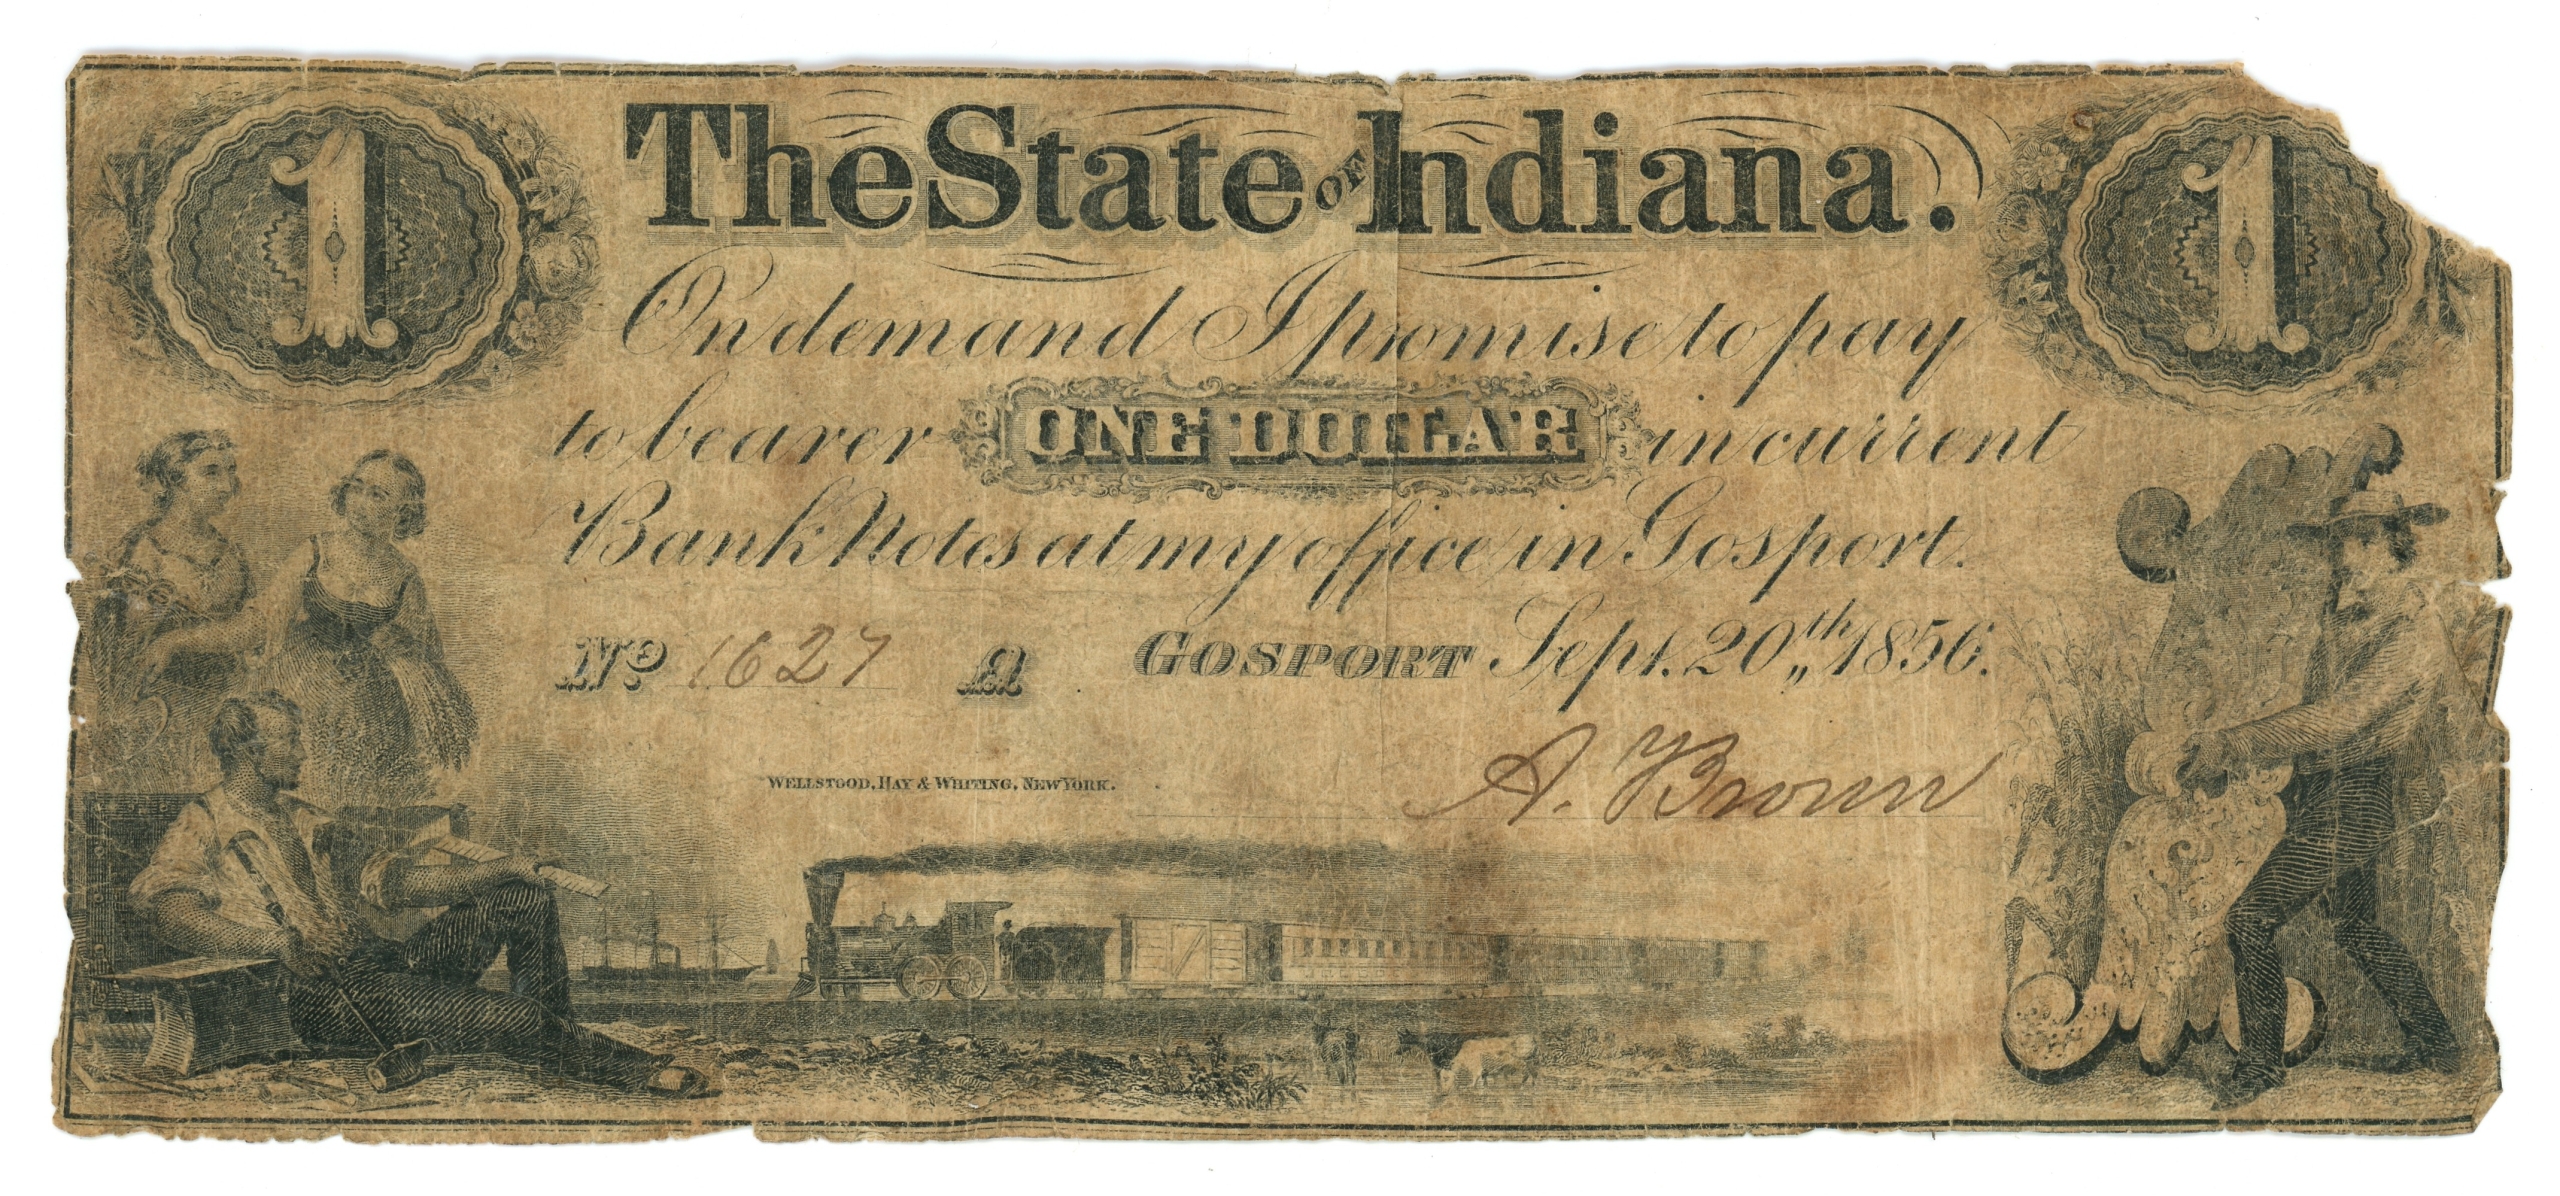 1 The State OF Indiana. 1
On demand I promise to pay
to bearer ONE DOLLAR in current
Bank Notes at my office in Gosport.
No 1627 A GOSPORT Sept. 20th 1856.
A. Brown
WELLSTOOD, HAY & WHITING, NEW YORK.